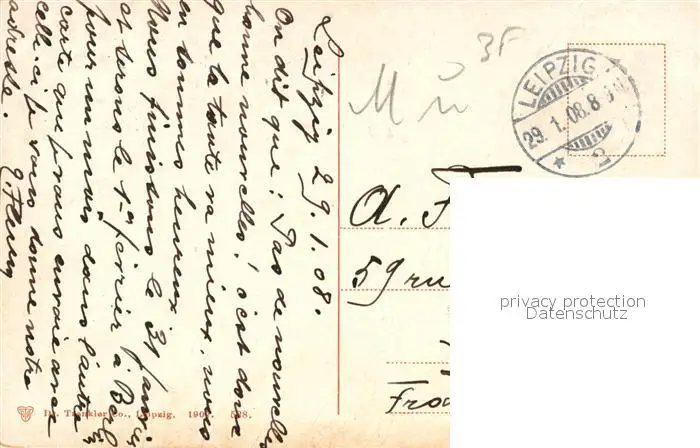 Leipzig 29.1.08.
On dit que: Pas de nouvelles
bonne nouvelles! c'est donc
que ta tante va mieux, nous
en sommes heureux
Nous finissons le 31 janvier
et serons le 1er février à
pour un mois dans l'autre
carte que je vous enverrai avec
celle-ci je vous donne notre
adresse.
3F
Mü
LEIPZIG
29.1.08.8
* 2
A. F
59 ru
Fra
privacy protection
Datenschutz
Dr. Trenkler Co., Leipzig. 190